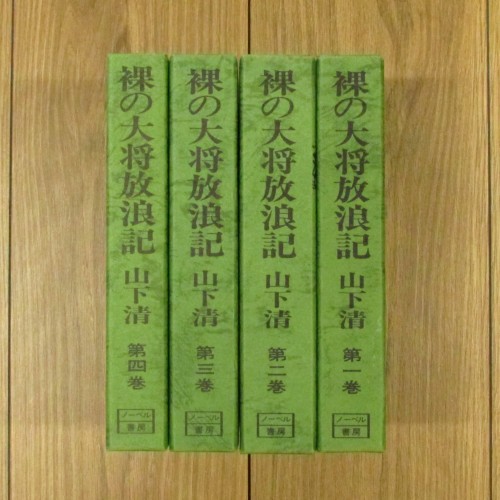 裸の大将放浪記 山下清 第一巻
ノーベル
書房
裸の大将放浪記 山下清 第二巻
ノーベル
書房
裸の大将放浪記 山下清 第三巻
ノーベル
書房
裸の大将放浪記 山下清 第四巻
ノーベル
書房